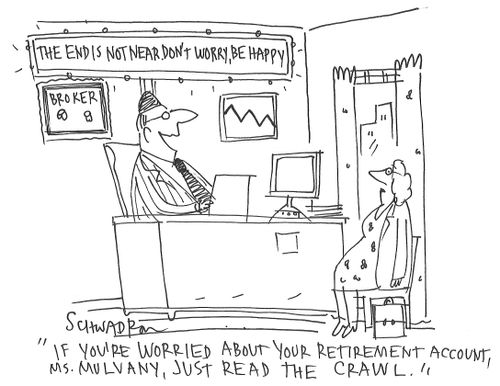 THE END IS NOT NEAR DON'T WORRY, BE HAPPY
BROKER
SCHWADRON
"IF YOU'RE WORRIED ABOUT YOUR RETIREMENT ACCOUNT,
MS. MULVANY, JUST READ THE CRAWL."